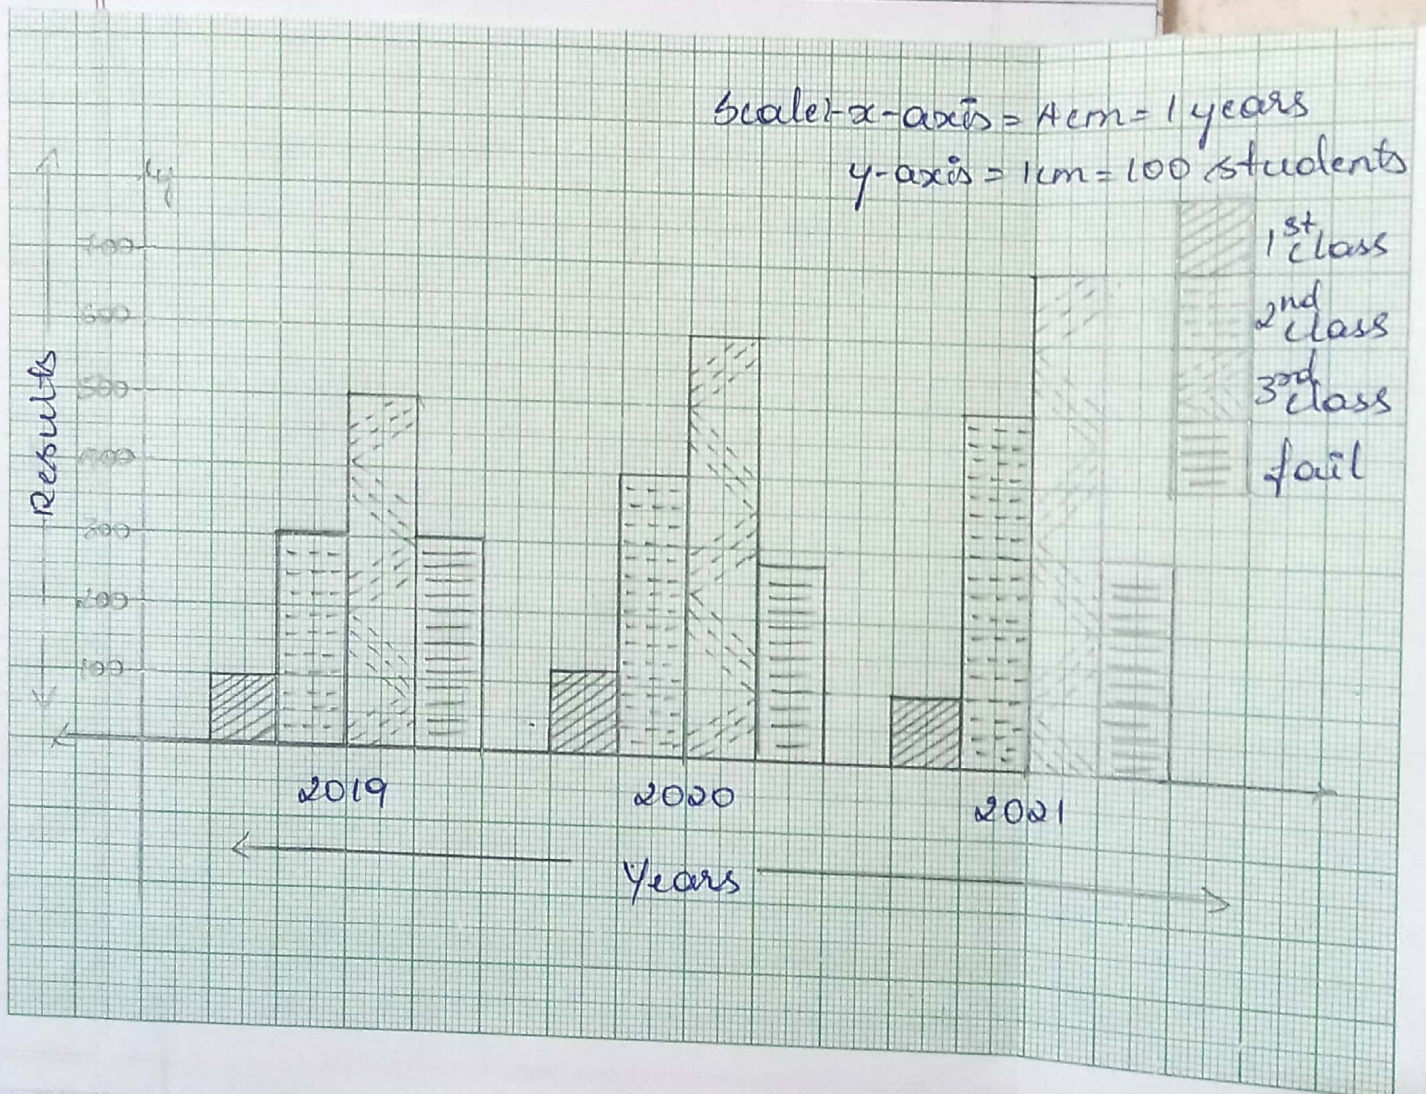 Scale:-x-axis = 4cm = 1 years
y-axis = 1cm = 100 students
y
1st class
2nd class
3rd class
fail
700
600
500
400
300
200
100
Results
2019
2020
2021
Years